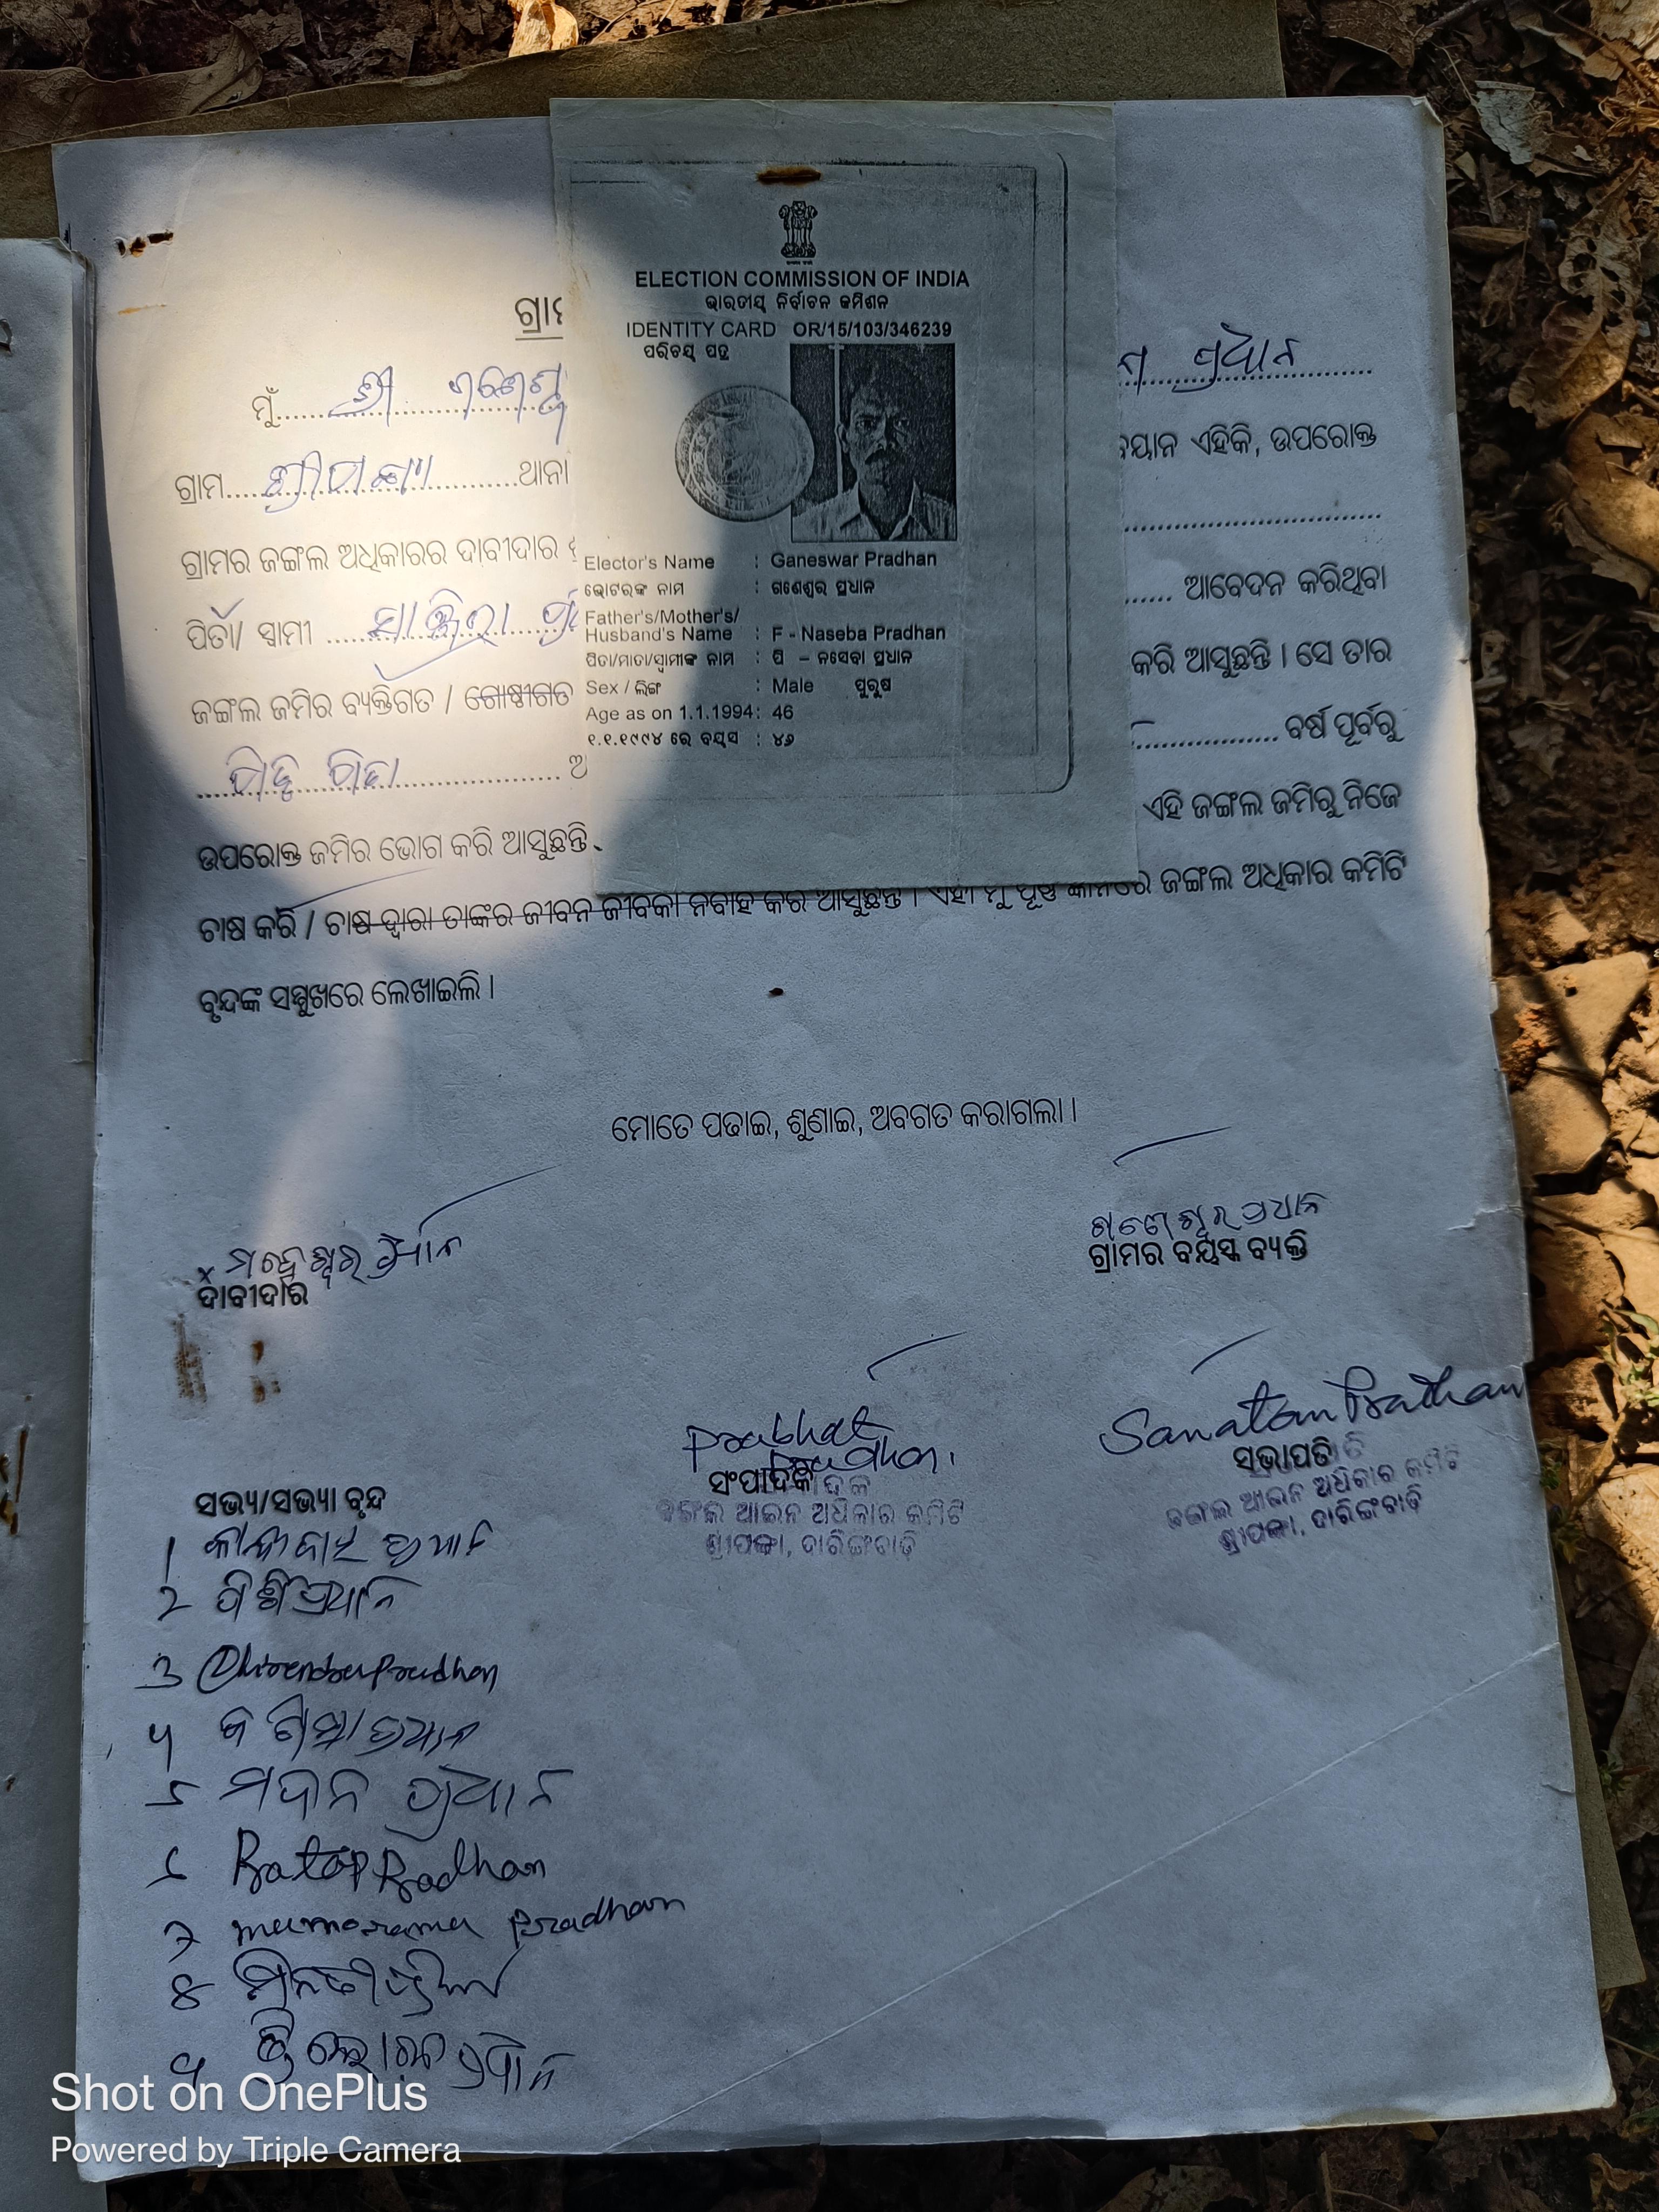 ELECTION COMMISSION OF INDIA
ଭାରତୀୟ ନିର୍ବାଚନ କମିଶନ
IDENTITY CARD OR/15/103/346239
ପରିଚୟ ପତ୍ର
Elector's Name : Ganeswar Pradhan
ଭୋଟରଙ୍କ ନାମ : ଗଣେଶ୍ୱର ପ୍ରଧାନ
Father's/Mother's/
Husband's Name : F - Naseba Pradhan
ପିତା/ମାତା/ସ୍ୱାମୀଙ୍କ ନାମ : ପି – ନସେବା ପ୍ରଧାନ
Sex / ଲିଙ୍ଗ : Male ପୁରୁଷ
Age as on 1.1.1994: 46
୧.୧.୧୯୯୪ ରେ ବୟସ : ୪୬
ମୁଁ ଶ୍ରୀ ପ୍ରଧାନ
ଗ୍ରାମ ଥାନା ବୟାନ ଏହିକି, ଉପରୋକ୍ତ
ଗ୍ରାମର ଜଙ୍ଗଲ ଅଧିକାରର ଦାବୀଦାର
ପିତା/ ସ୍ୱାମୀ ଆବେଦନ କରିଥିବା
ଜଙ୍ଗଲ ଜମିର ବ୍ୟକ୍ତିଗତ / ଗୋଷ୍ଠୀଗତ କରି ଆସୁଛନ୍ତି । ସେ ତାର
ବର୍ଷ ପୂର୍ବରୁ
ଉପରୋକ୍ତ ଜମିର ଭୋଗ କରି ଆସୁଛନ୍ତି ଏହି ଜଙ୍ଗଲ ଜମିରୁ ନିଜେ
ଚାଷ କରି / ଚାଷ ଦ୍ୱାରା ତାଙ୍କର ଜୀବନ ଜୀବିକା ନିର୍ବାହ କରି ଆସୁଛନ୍ତି । ଏହା ମୁଁ ପୂର୍ଣ୍ଣ ଜ୍ଞାନରେ ଜଙ୍ଗଲ ଅଧିକାର କମିଟି
ବୃନ୍ଦଙ୍କ ସମ୍ମୁଖରେ ଲେଖାଇଲି ।
ମୋତେ ପଢାଇ, ଶୁଣାଇ, ଅବଗତ କରାଗଲା ।
x ମହେଶ୍ୱର ପ୍ରଧାନ
ଦାବୀଦାର
ଗଣେଶ୍ୱର ପ୍ରଧାନ
ଗ୍ରାମର ବୟସ୍କ ବ୍ୟକ୍ତି
Prabhat Pradhan.
ସଂପାଦକ
ଜଙ୍ଗଲ ଆଇନ ଅଧିକାର କମିଟି
ଶ୍ରୀପଙ୍କା, ଦାରିଙ୍ଗବାଡ଼ି
Sanatan Pradhan
ସଭାପତି
ଜଙ୍ଗଲ ଆଇନ ଅଧିକାର କମିଟି
ଶ୍ରୀପଙ୍କା, ଦାରିଙ୍ଗବାଡ଼ି
ସଭ୍ୟ/ସଭ୍ୟା ବୃନ୍ଦ
1 ପ୍ରଧାନ
2 ପ୍ରଧାନ
3 Dhirendra Pradhan
୪ ପ୍ରଧାନ
୫ ମଦନ ପ୍ରଧାନ
୬ Pratap Pradhan
7 Pradhan
୮
୯ ପ୍ରଧାନ
Shot on OnePlus
Powered by Triple Camera